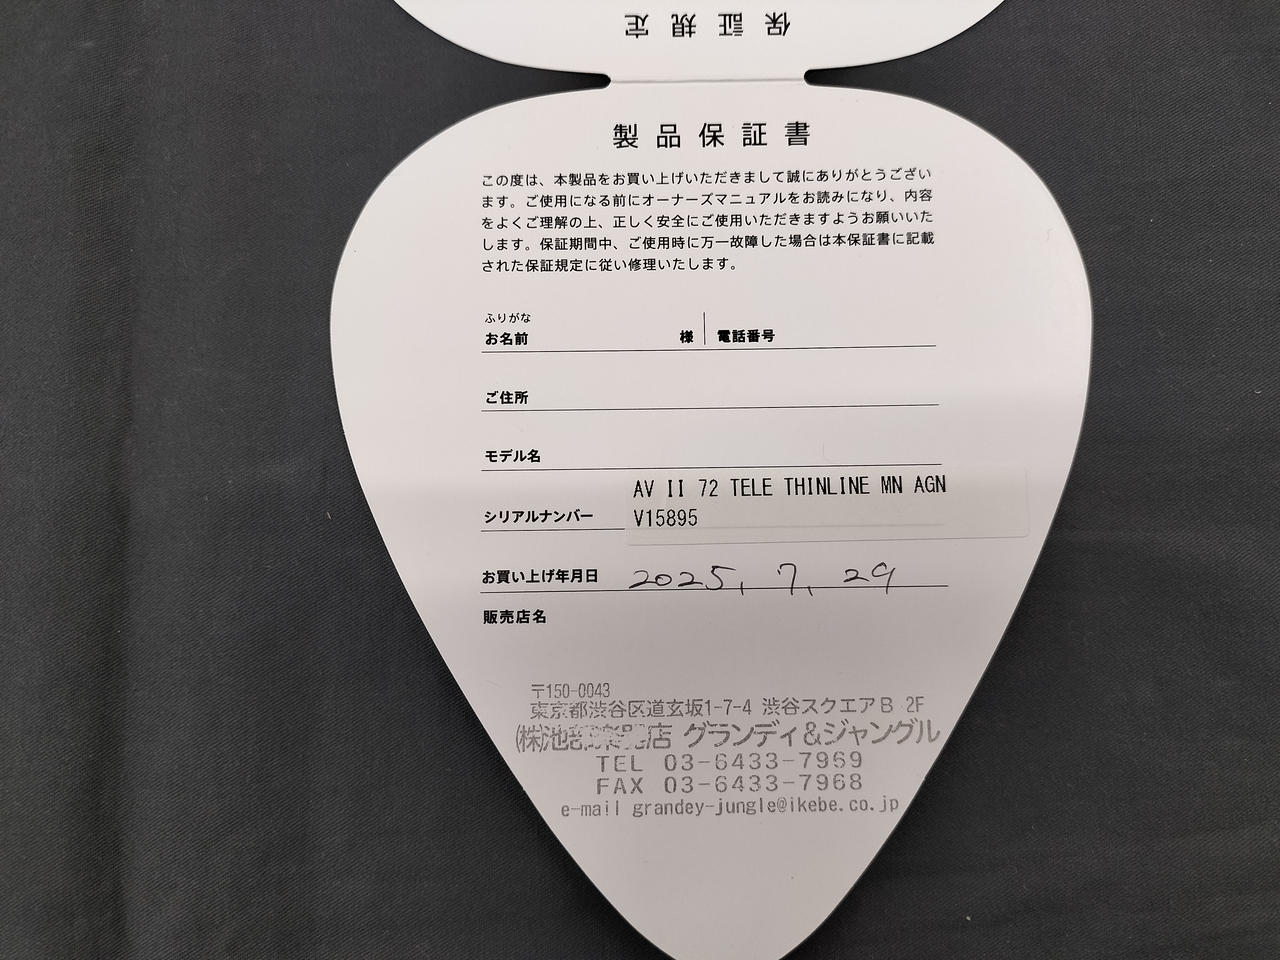 保証規定
製品保証書
この度は、本製品をお買い上げいただきまして誠にありがとうござい
ます。ご使用になる前にオーナーズマニュアルをお読みになり、内容
をよくご理解の上、正しく安全にご使用いただきますようお願いいた
します。保証期間中、ご使用時に万一故障した場合は本保証書に記載
された保証規定に従い修理いたします。
ふりがな
お名前 様 電話番号
ご住所
モデル名
AV II 72 TELE THINLINE MN AGN
シリアルナンバー V15895
お買い上げ年月日 2025, 7, 29
販売店名
〒150-0043
東京都渋谷区道玄坂1-7-4 渋谷スクエアB 2F
㈱池部楽器店 グランディ&ジャングル
TEL 03-6433-7969
FAX 03-6433-7968
e-mail grandey-jungle@ikebe.co.jp